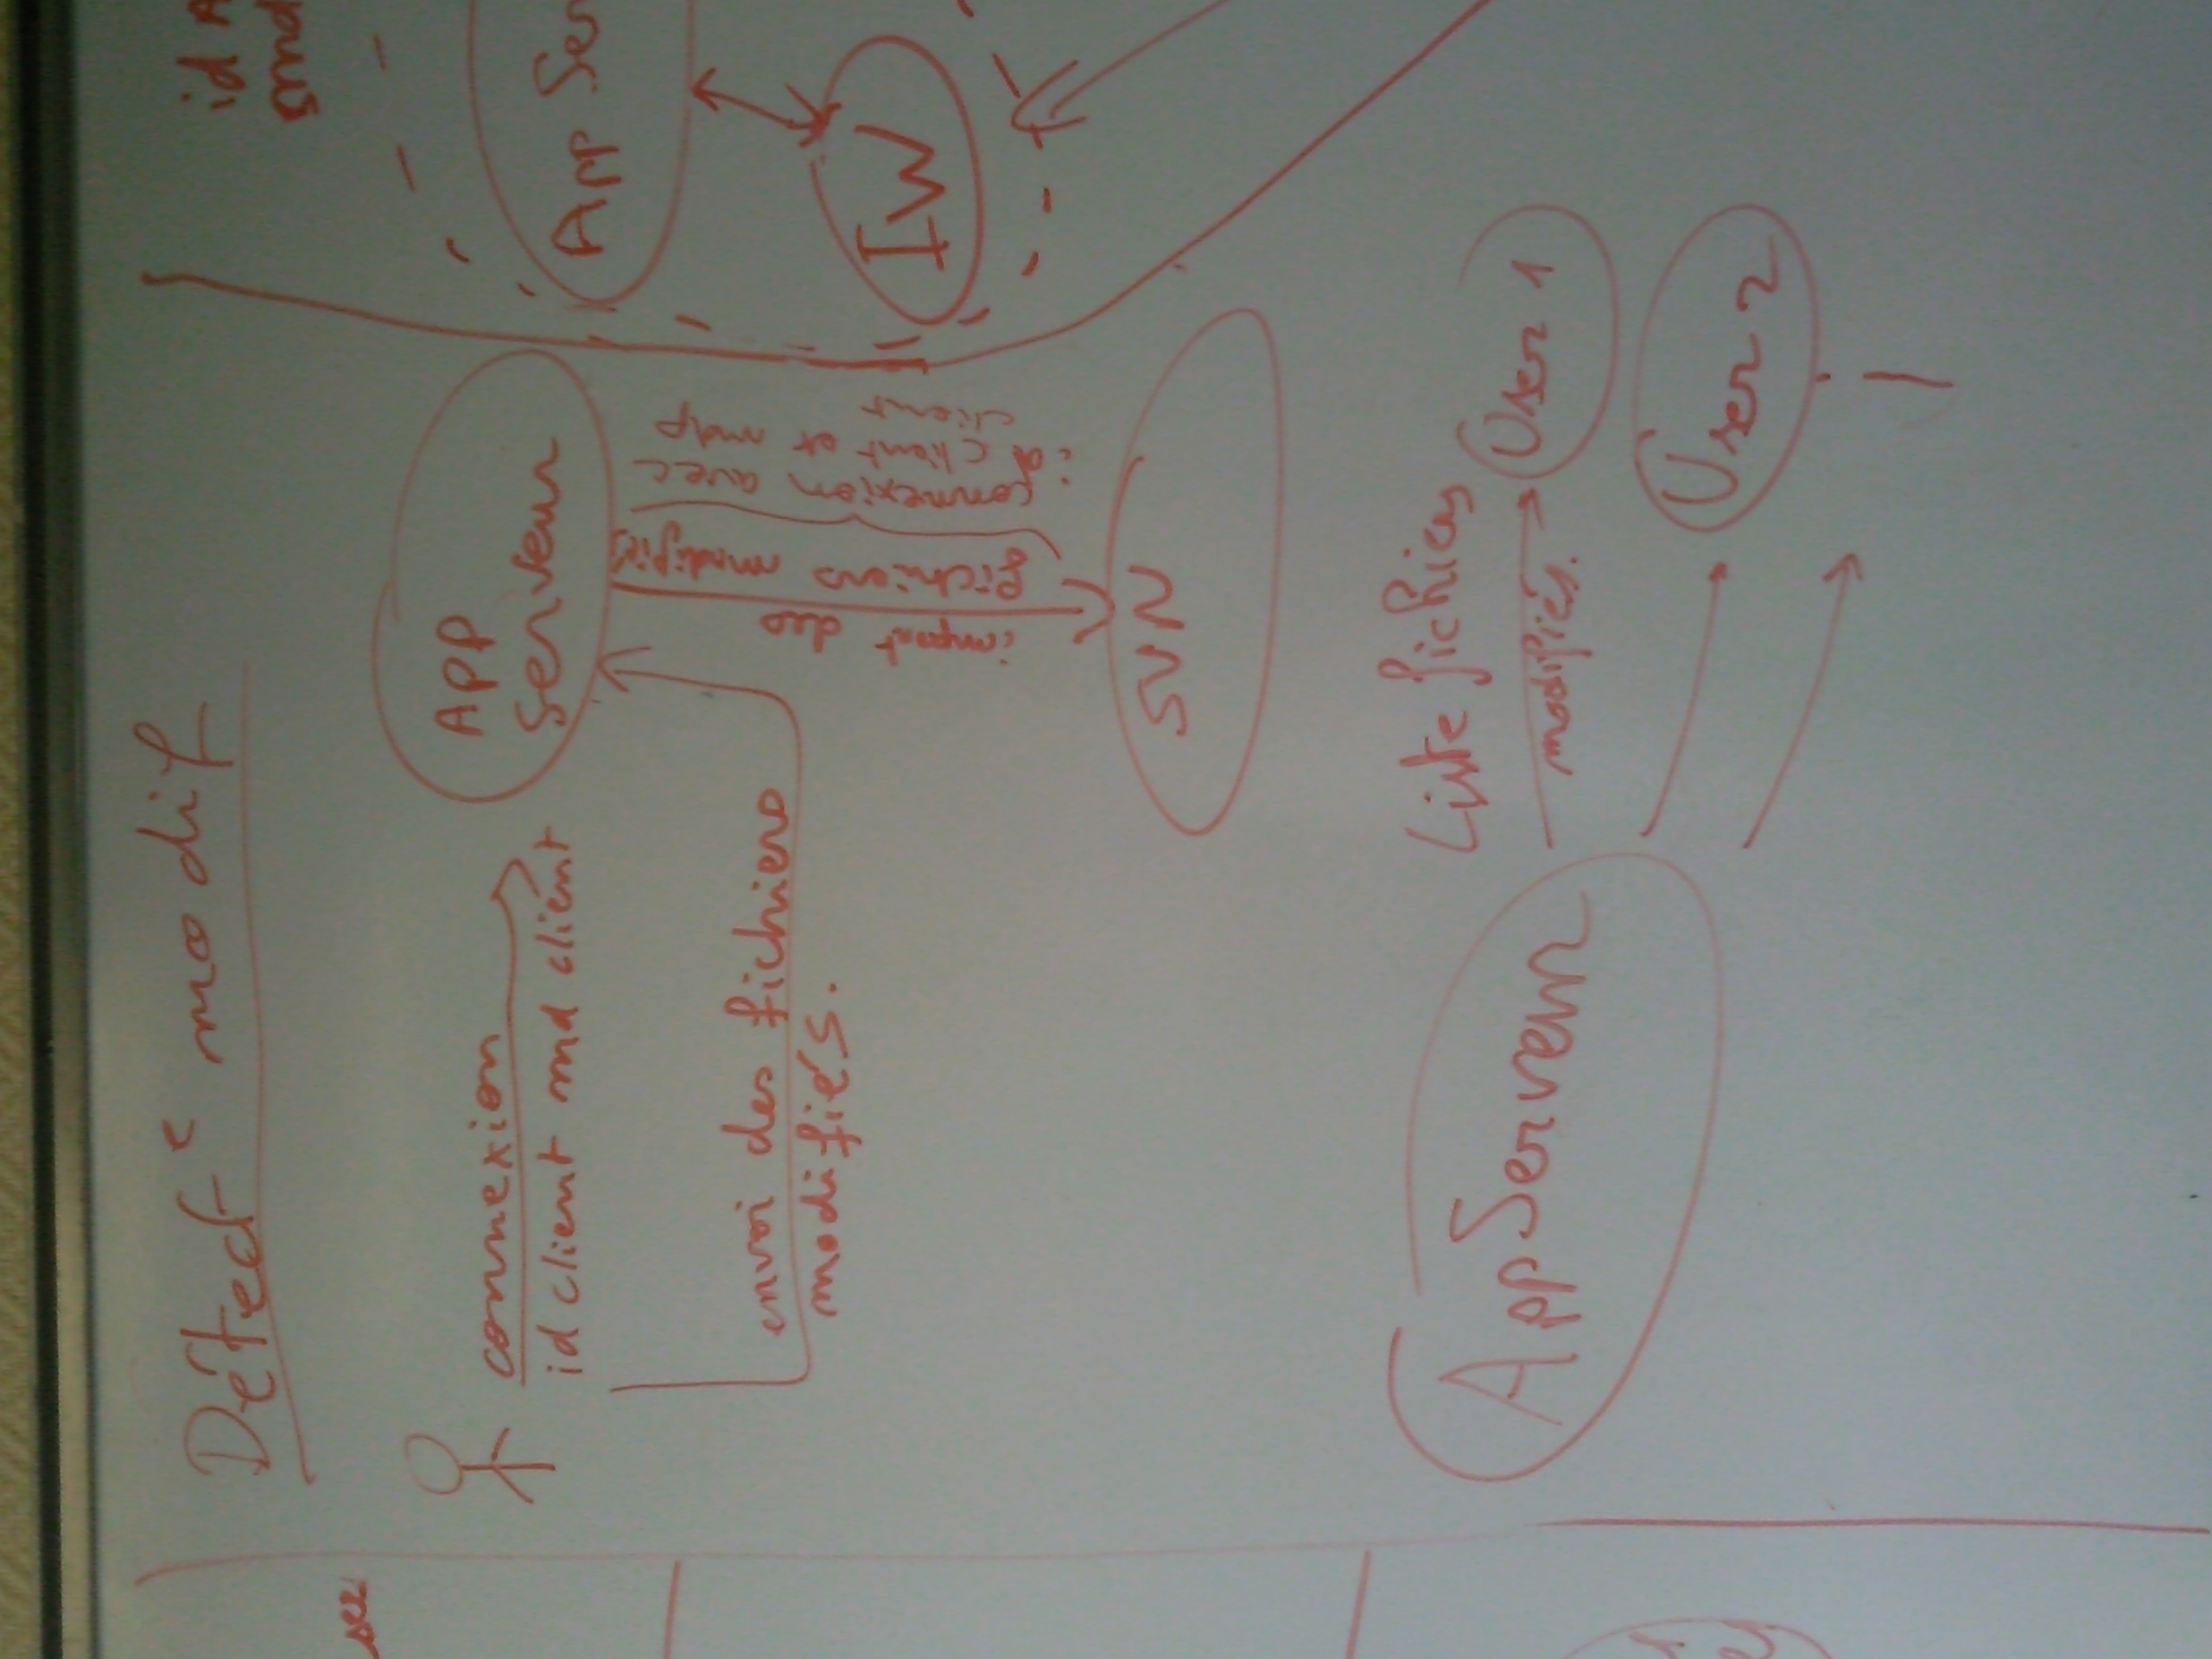 Détect° modif
connexion
id client md client
App
serveur
envoi des fichiers
modifiés.
import des
fichiers modifiés
connexion avec
id client et mdp
client
SVN
AppServeur
Liste fichiers
modifiés.
User 1
User 2
id A
App Ser
IW